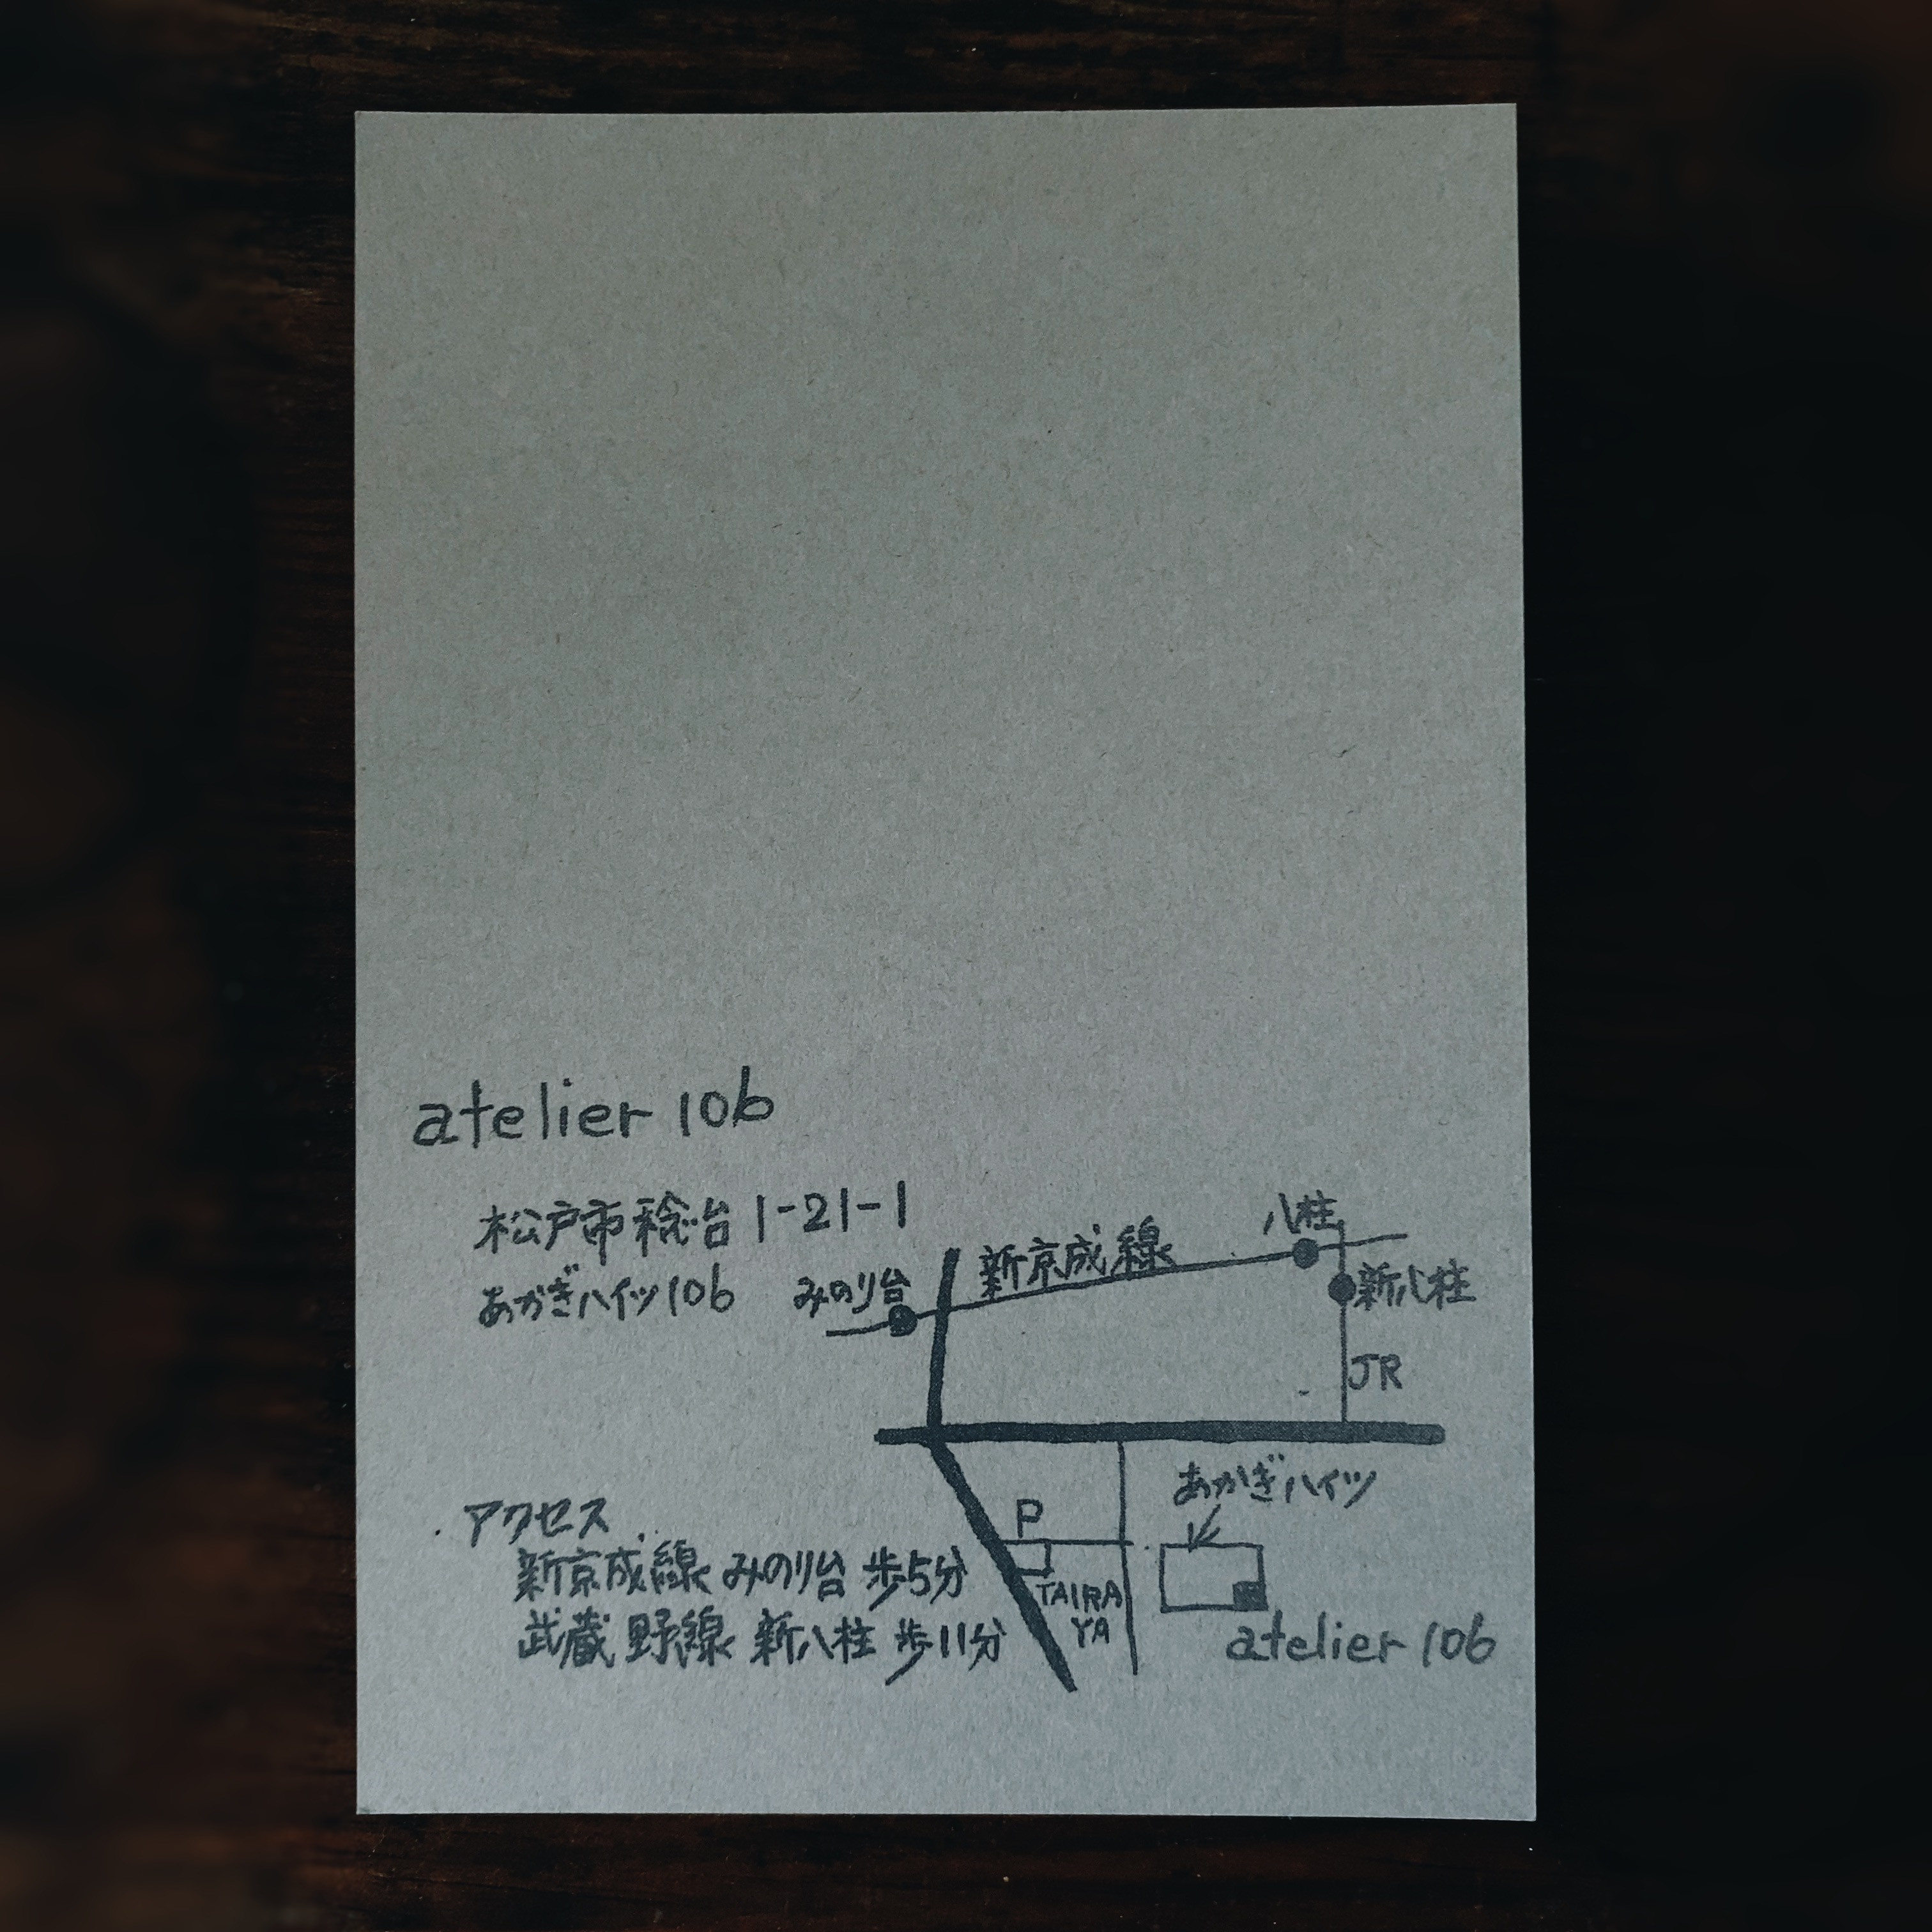 atelier 106
松戸市稔台1-21-1
あかぎハイツ106
みのり台
新京成線
八柱
新八柱
JR
あかぎハイツ
P
TAIRA
YA
atelier 106
アクセス
新京成線 みのり台 歩5分
武蔵野線 新八柱 歩11分